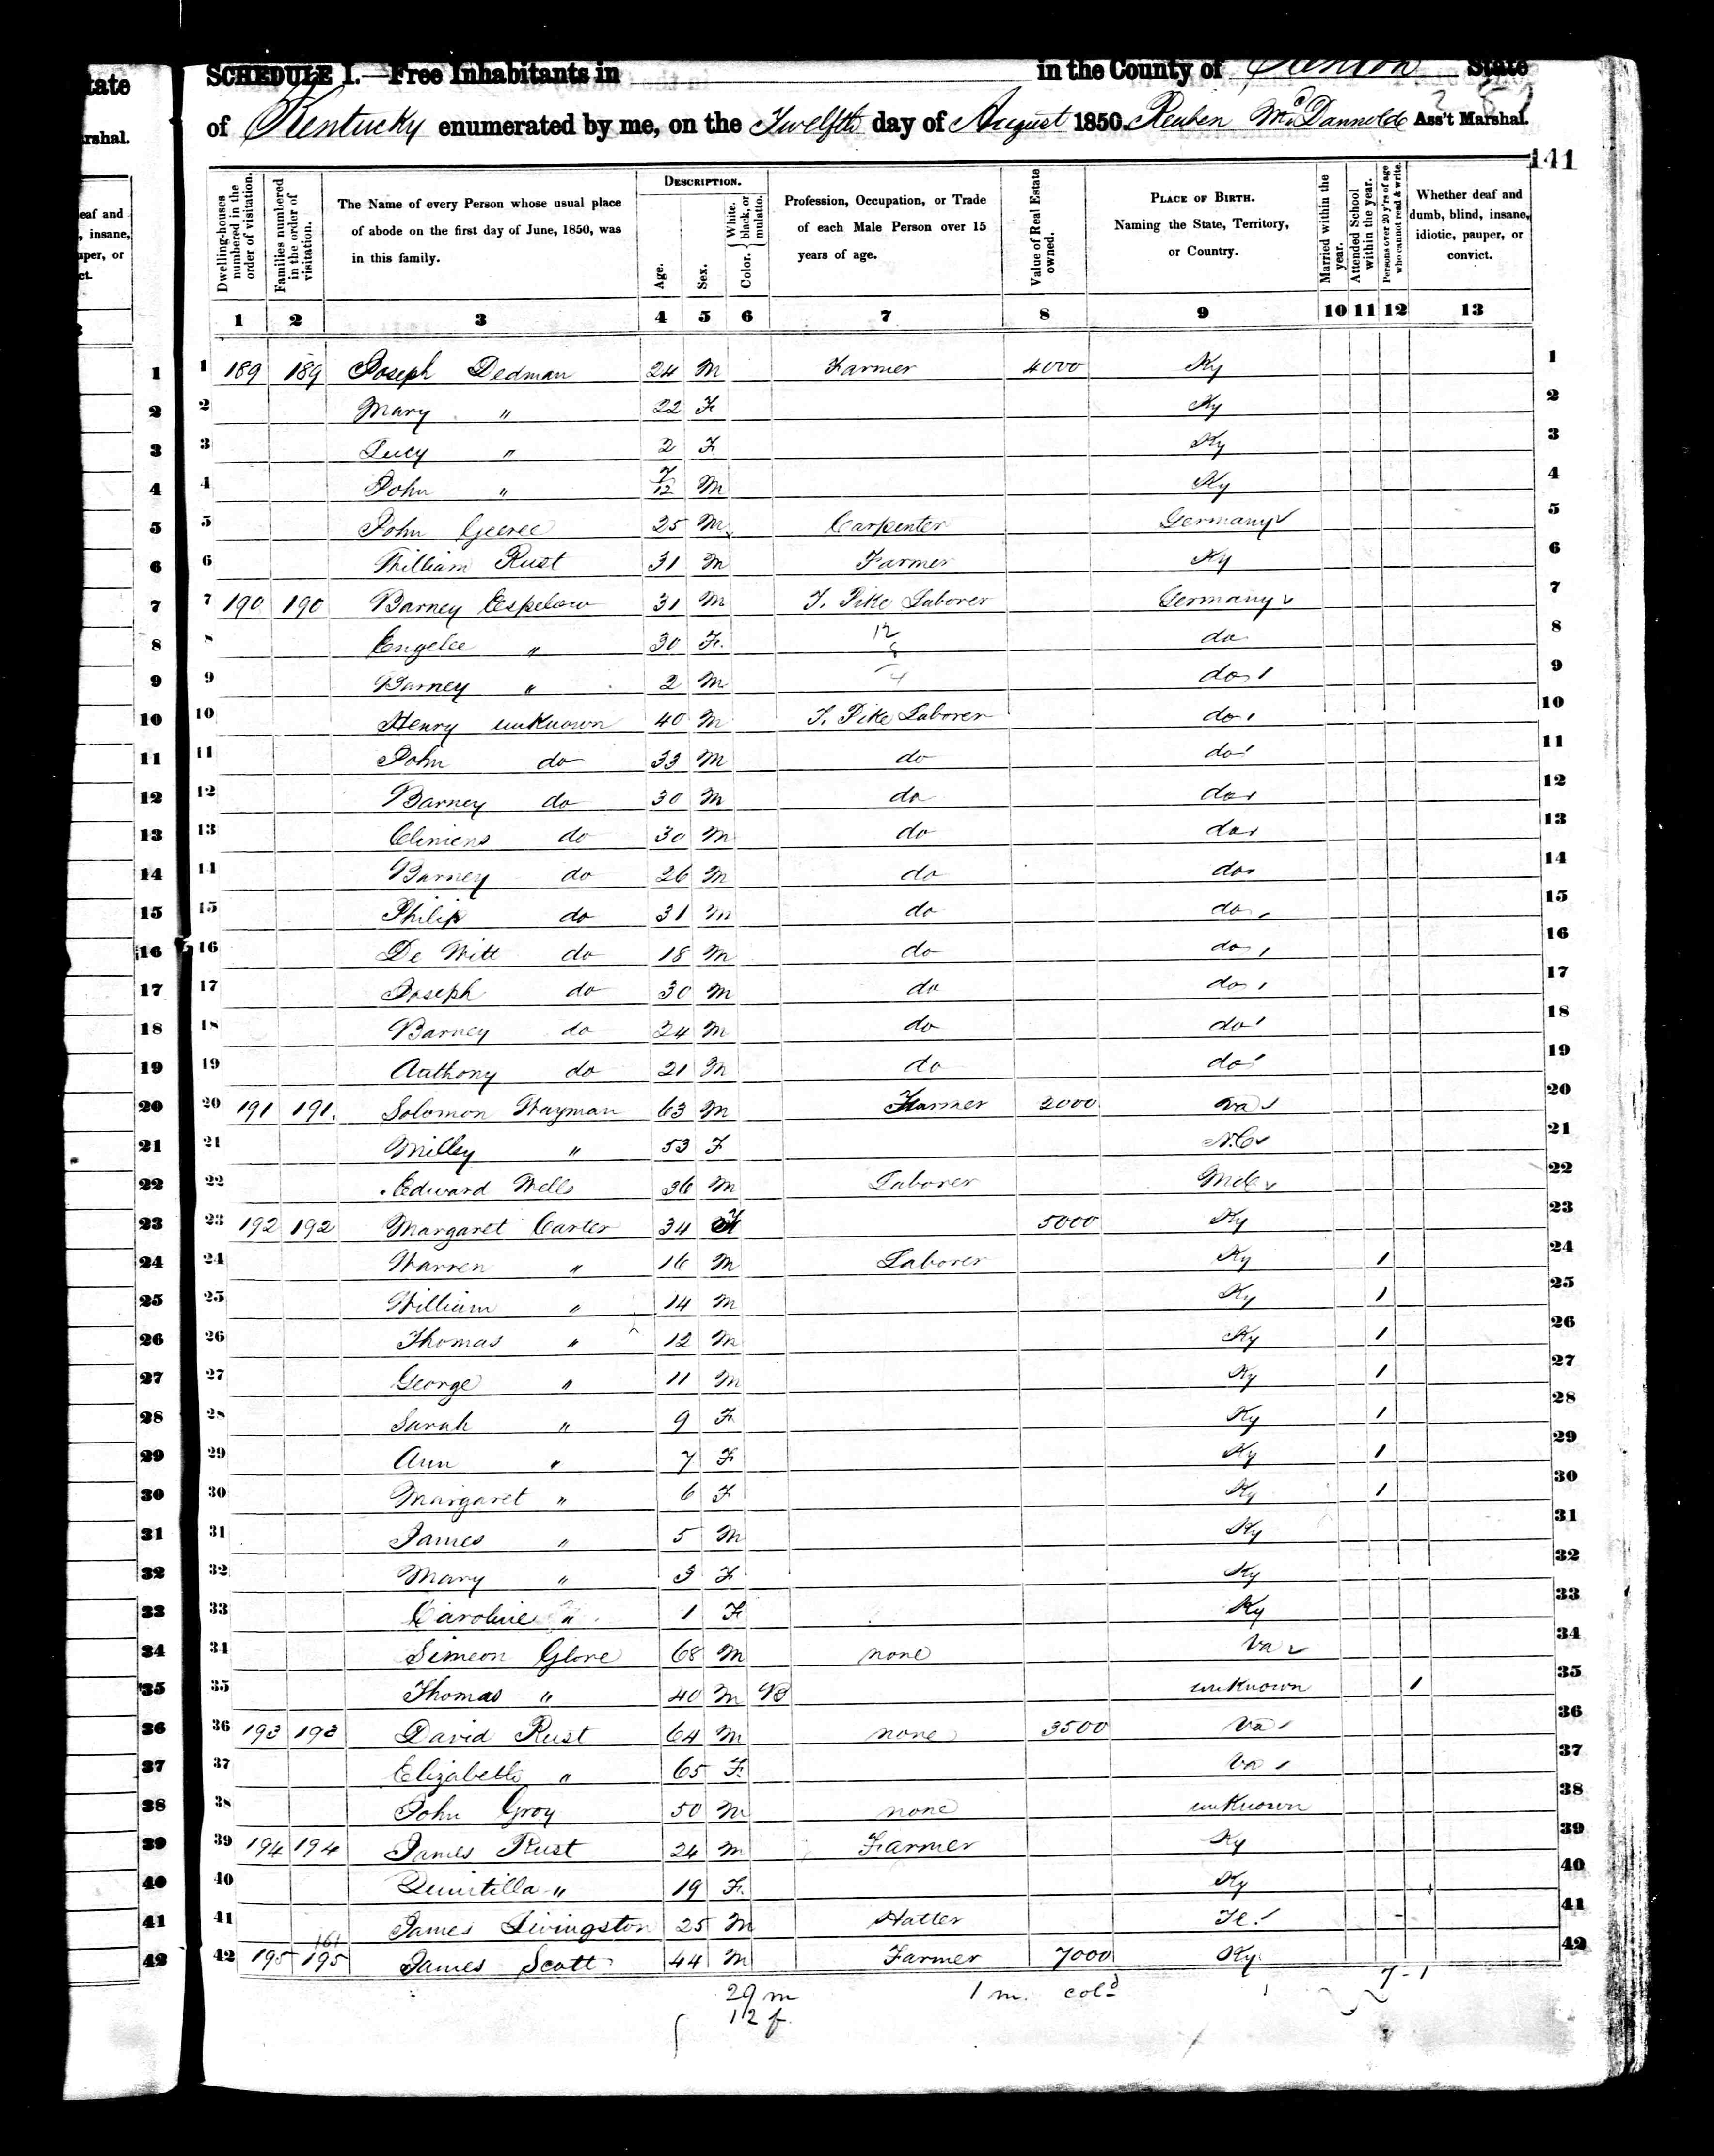 SCHEDULE I.—Free Inhabitants in in the County of Kenton State
of Kentucky enumerated by me, on the Twelfth day of August 1850. Reuben McDannolde Ass't Marshal.
141
Dwelling-houses numbered in the order of visitation.
Families numbered in the order of visitation.
The Name of every Person whose usual place of abode on the first day of June, 1850, was in this family.
DESCRIPTION.
Age.
Sex.
Color. White, black, or mulatto.
Profession, Occupation, or Trade of each Male Person over 15 years of age.
Value of Real Estate owned.
PLACE OF BIRTH. Naming the State, Territory, or Country.
Married within the year.
Attended School within the year.
Persons over 20 y'rs of age who cannot read & write.
Whether deaf and dumb, blind, insane, idiotic, pauper, or convict.
1 2 3 4 5 6 7 8 9 10 11 12 13
1 189 189 Joseph Dedman 24 M Farmer 4000 Ky 1
2 Mary " 22 F Ky 2
3 Lucy " 2 F Ky 3
4 John " 7/12 M Ky 4
5 John 25 M Carpenter Germany 5
6 William Rust 31 M Farmer Ky 6
7 190 190 Barney Espelow 31 M T. Pike Laborer Germany 7
8 Engelee " 30 F. 12 do 8
9 Barney " 2 M do 9
10 Henry unKnown 40 M T. Pike Laborer do 10
11 John do 33 M do do 11
12 Barney do 30 M do do 12
13 Clemens do 30 M do do 13
14 Barney do 26 M do do 14
15 Philip do 31 M do do 15
16 De Witt do 18 M do do 16
17 Joseph do 30 M do do 17
18 Barney do 24 M do do 18
19 Anthony do 21 M do do 19
20 191 191. Solomon Wayman 63 M Farmer 2000 Va 20
21 Milley " 53 F N.C 21
22 Edward Wells 36 M Laborer Md 22
23 192 192 Margaret Carter 34 F 5000 Ky 23
24 Warren " 16 M Laborer Ky 1 24
25 William " 14 M Ky 1 25
26 Thomas " 12 M Ky 1 26
27 George " 11 M Ky 1 27
28 Sarah " 9 F Ky 1 28
29 Ann " 7 F Ky 1 29
30 Margaret " 6 F Ky 1 30
31 James " 5 M Ky 31
32 Mary " 3 F Ky 32
33 Caroline " 1 F Ky 33
34 Simeon Glore 68 M none Va 34
35 Thomas " 40 M B unKnown 1 35
36 193 193 David Rust 64 M none 3500 Va 36
37 Elizabeth " 65 F. Va 37
38 John Groy 50 M none unKnown 38
39 194 194 James Rust 24 M Farmer Ky 39
40 Quintilla " 19 F. Ky 40
41 James Livingston 25 M Hatter 41
161
42 195 195 James Scott 44 M Farmer 7000 Ky 42
29 m 1 m. cold 7-1
12 f.